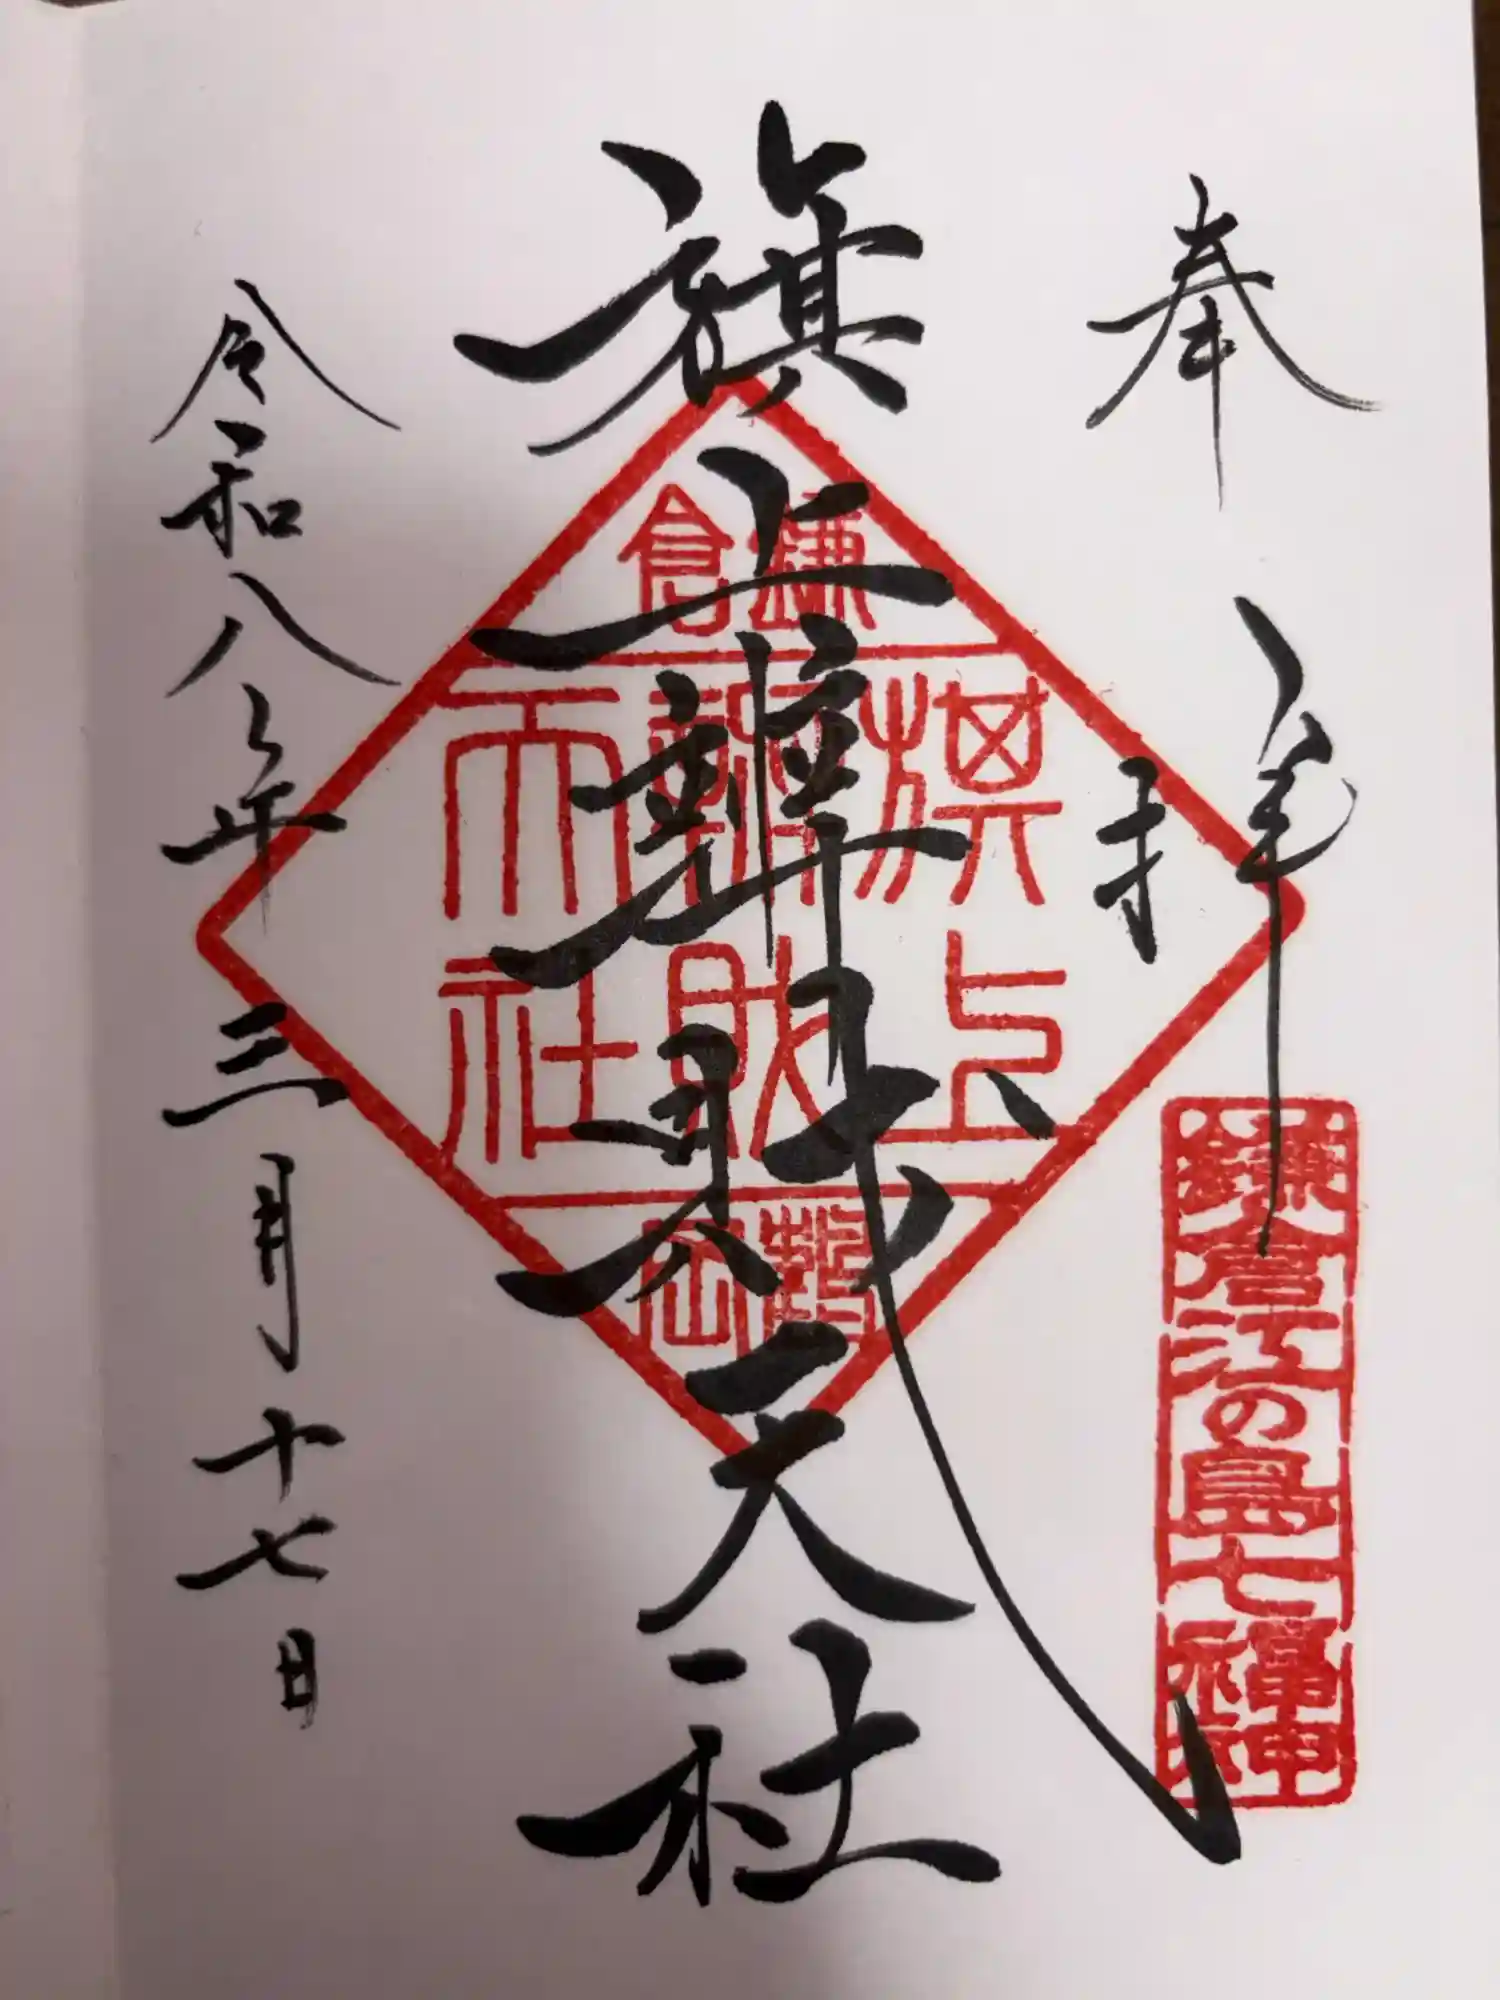 奉拝
鎌倉江の島七福神
旗上辨財天社
鎌倉
旗上
辨財
天社
鶴岡
令和八年三月十七日